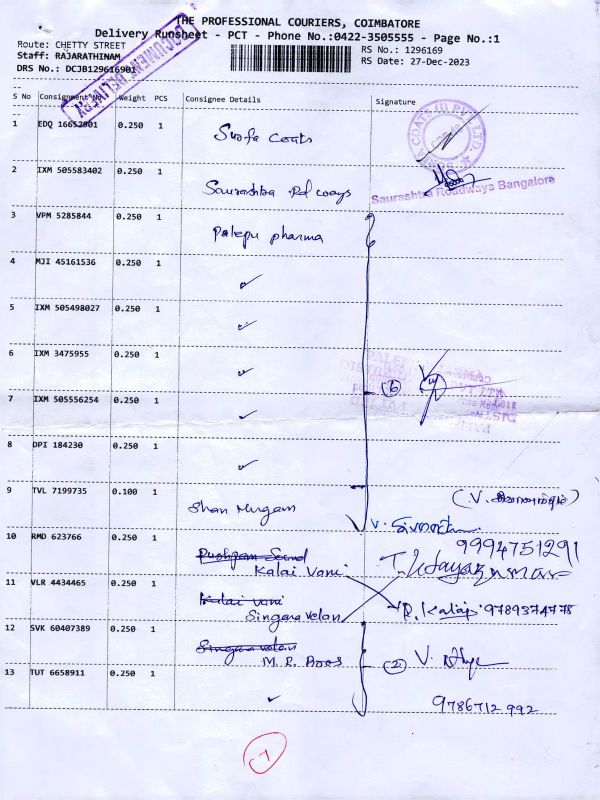 THE PROFESSIONAL COURIERS, COIMBATORE
Delivery Runsheet - PCT - Phone No.:0422-3505555 - Page No.:1
Route: CHETTY STREET
Staff: RAJARATHINAM
DRS No.: DCJB129616901
RS No.: 1296169
RS Date: 27-Dec-2023
DOCUMENT DELIVERY
S No Consignment No Weight PCS Consignee Details Signature
1 EDQ 16652001 0.250 1 Surfa Coats
2 IXM 505583402 0.250 1 Saurashtra Rd ways
Saurashtra Roadways Bangalore
3 VPM 5285844 0.250 1 Palepu pharma
4 MJI 45161536 0.250 1 ✓
5 IXM 505498027 0.250 1 ✓
6 IXM 3475955 0.250 1 ✓
(6)
7 IXM 505556254 0.250 1 ✓
8 DPI 184230 0.250 1 ✓
9 TVL 7199735 0.100 1 Shan Mugam
10 RMD 623766 0.250 1 Kalai Vani
9994751291
T. Udayakumar
11 VLR 4434465 0.250 1 Kalai vani
Singaravelan
R. Kalai 9789374775
12 SVK 60407389 0.250 1 Singaravelan
M. R. Boos (2)
13 TUT 6658911 0.250 1 ✓
9786712992
7